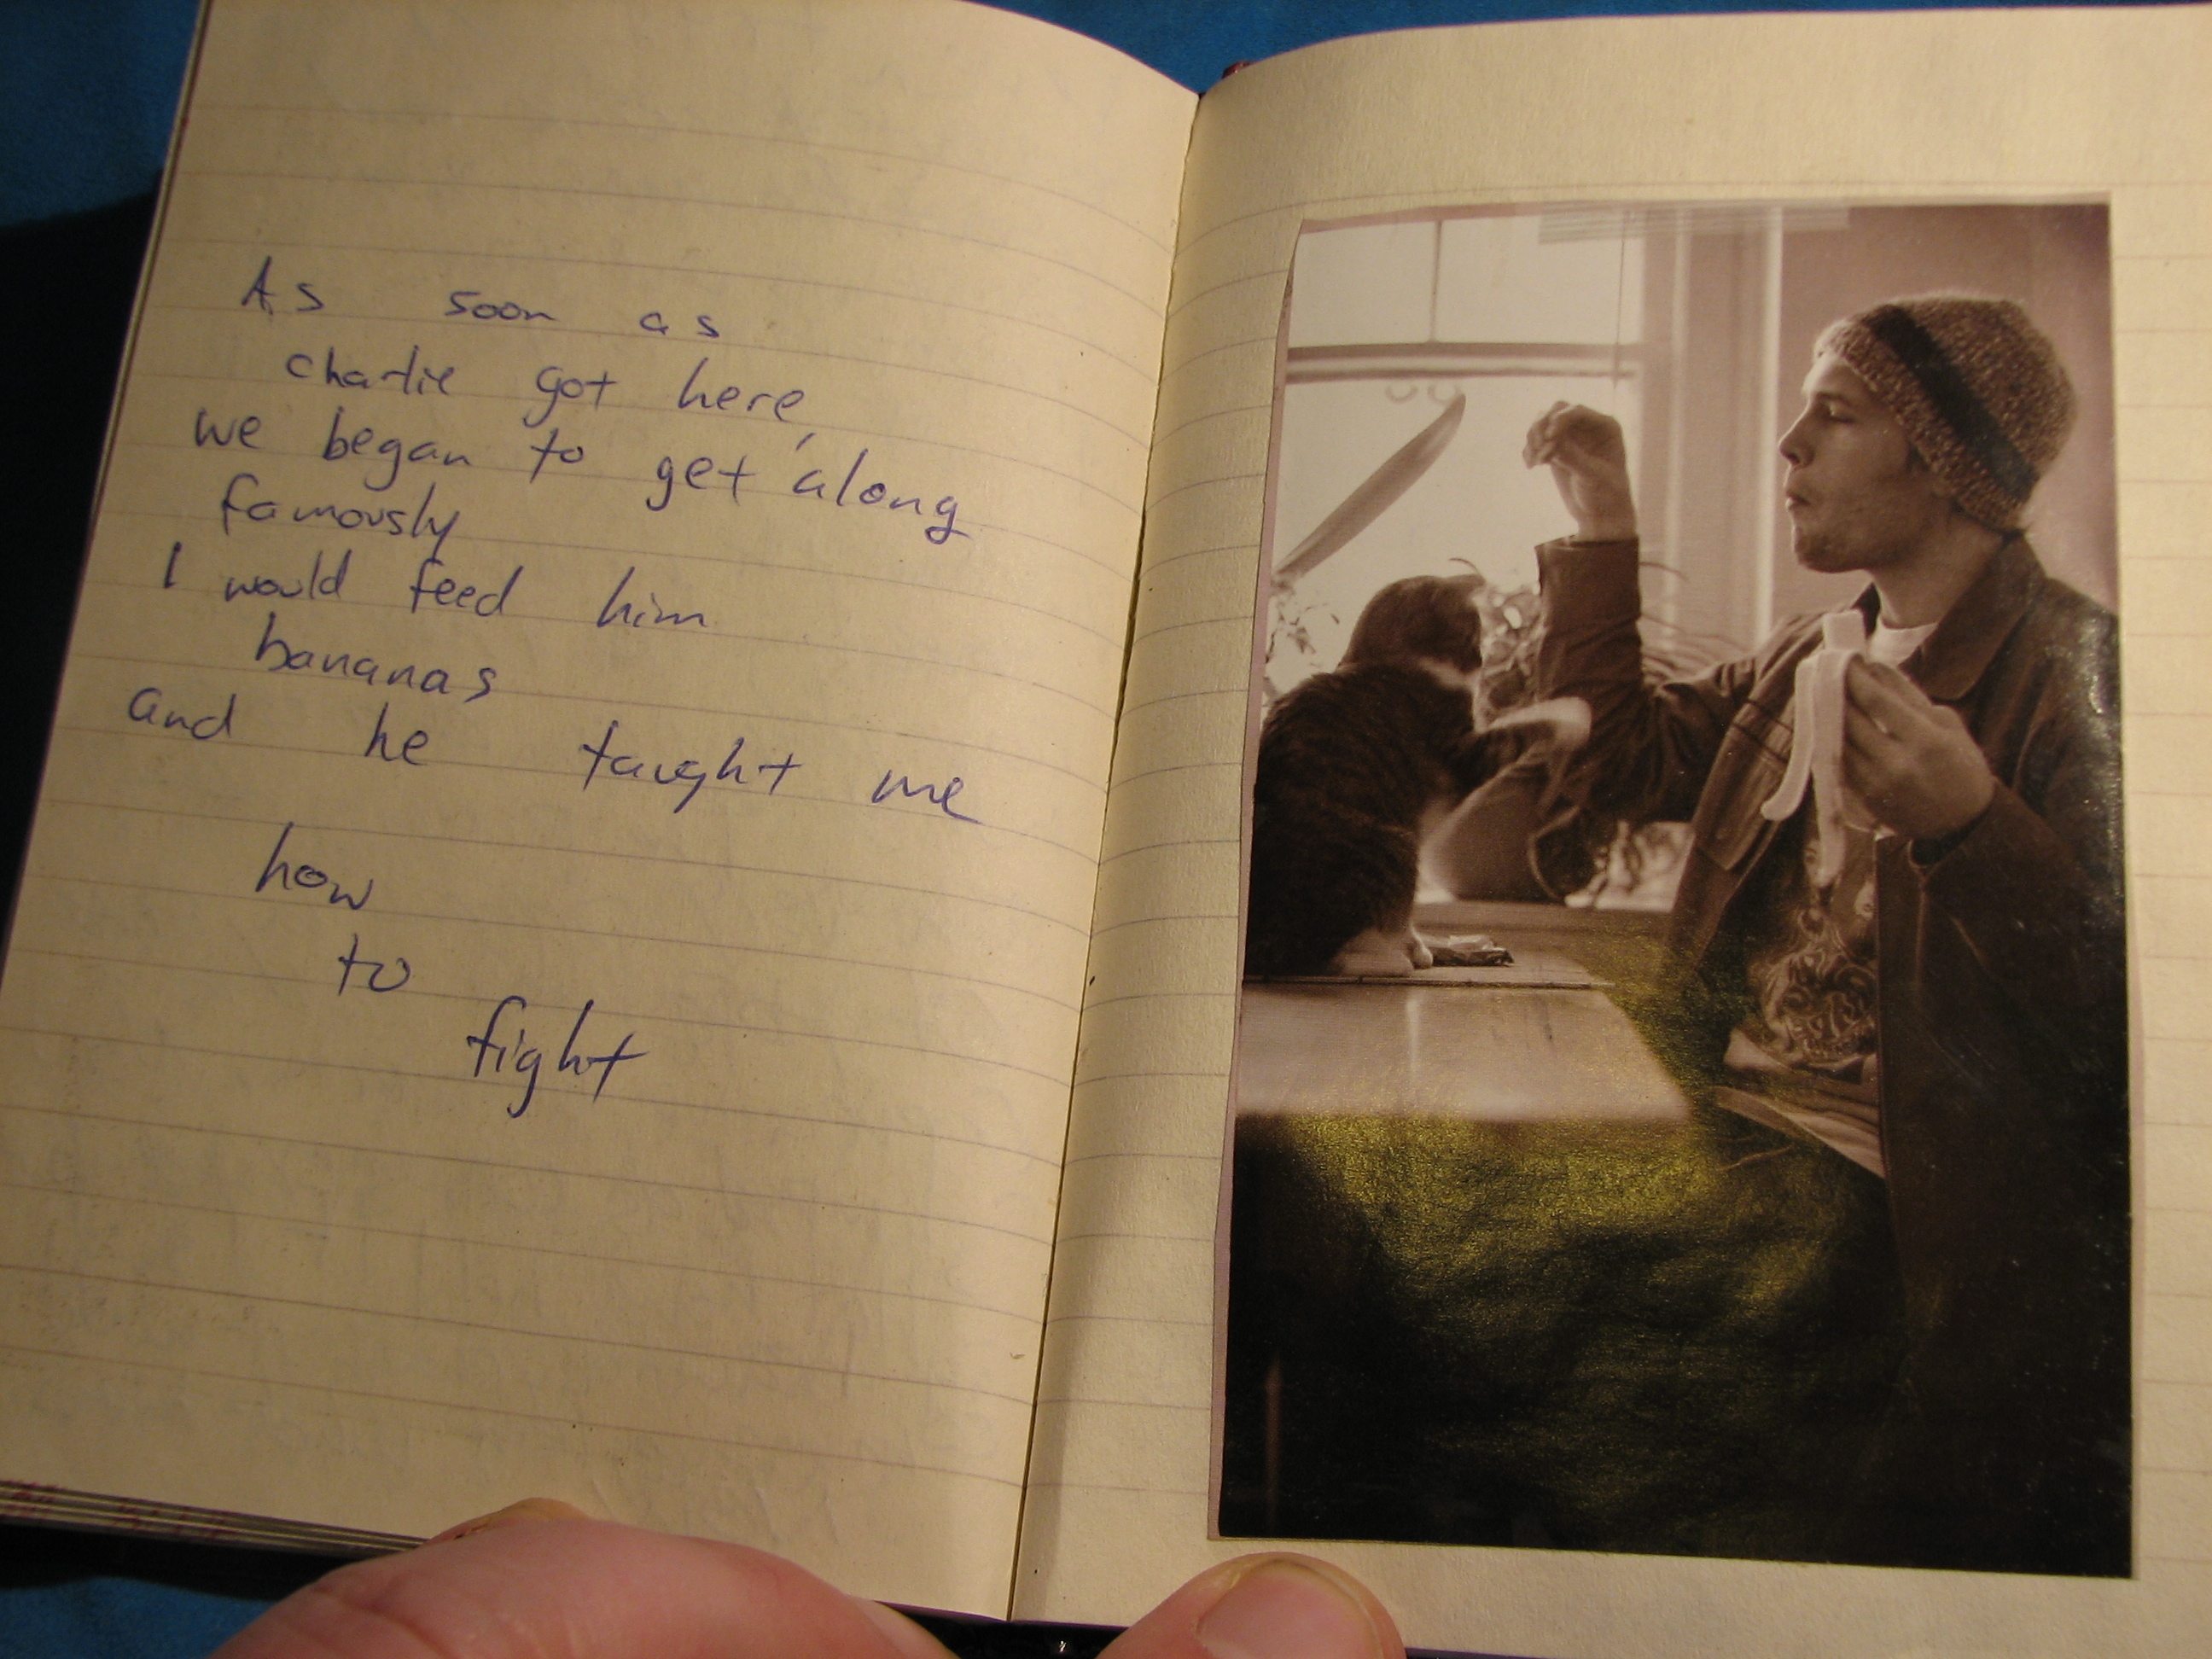 As soon as
charlie got here,
we began to get along
famously
I would feed him
bananas
and he taught me
how
to
fight